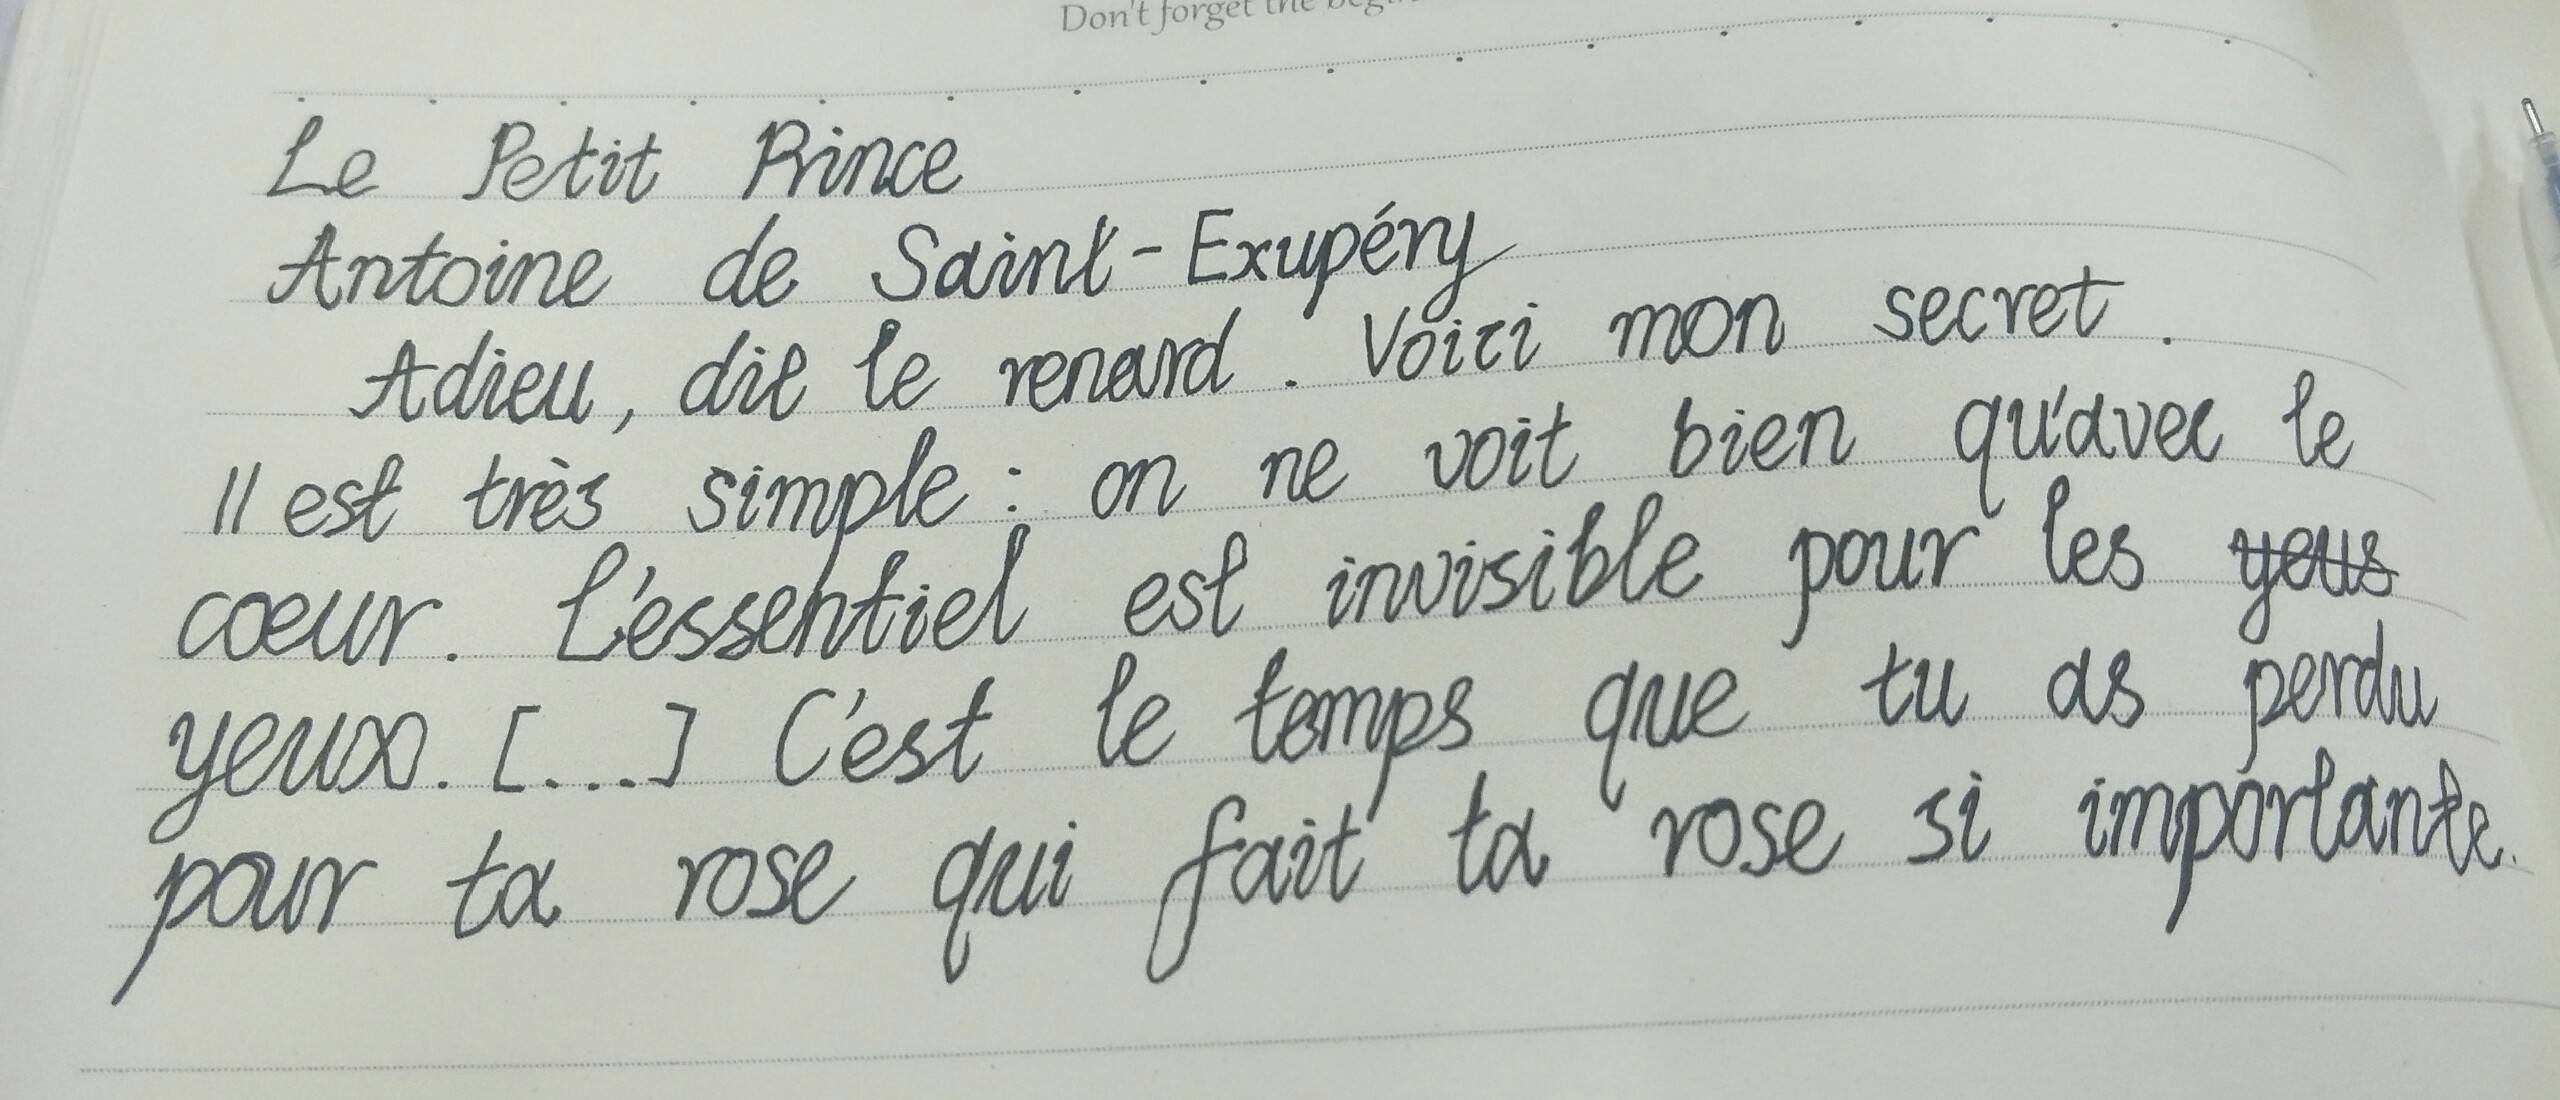 Don't forget the begi
Le Petit Prince
Antoine de Saint-Exupéry
Adieu, dit le renard. Voici mon secret.
Il est très simple : on ne voit bien qu'avec le
cœur. L'essentiel est invisible pour les yeus
yeux. [...] C'est le temps que tu as perdu
pour ta rose qui fait ta rose si importante.